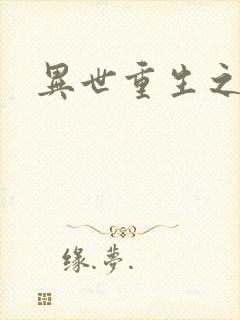 異世重生之
缘.夢.